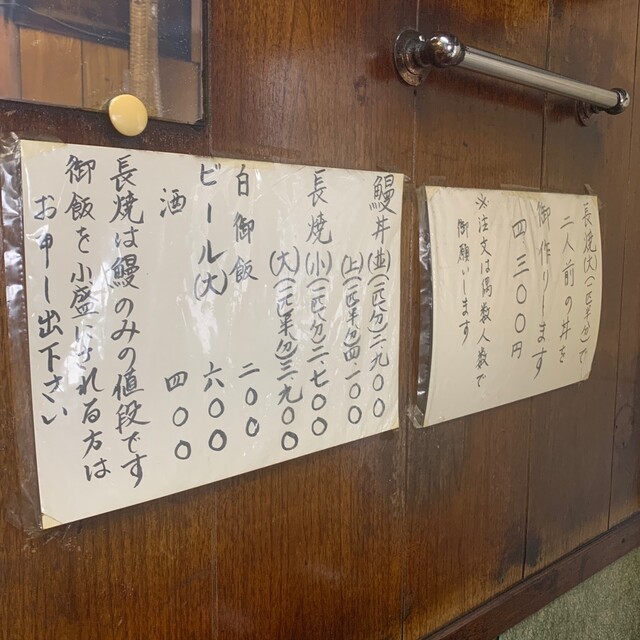 長焼(大)(一匹半分)で
二人前の丼を
御作りします
四三〇〇円
※注文は偶数人数で
御願いします
鰻丼(並)(一匹分)二九〇〇
(上)(一匹半分)四一〇〇
長焼(小)(一匹分)二七〇〇
(大)(一匹半分)三九〇〇
白御飯 二〇〇
ビール(大) 六〇〇
酒 四〇〇
長焼は鰻のみの値段です
御飯を小盛にされる方は
お申し出下さい